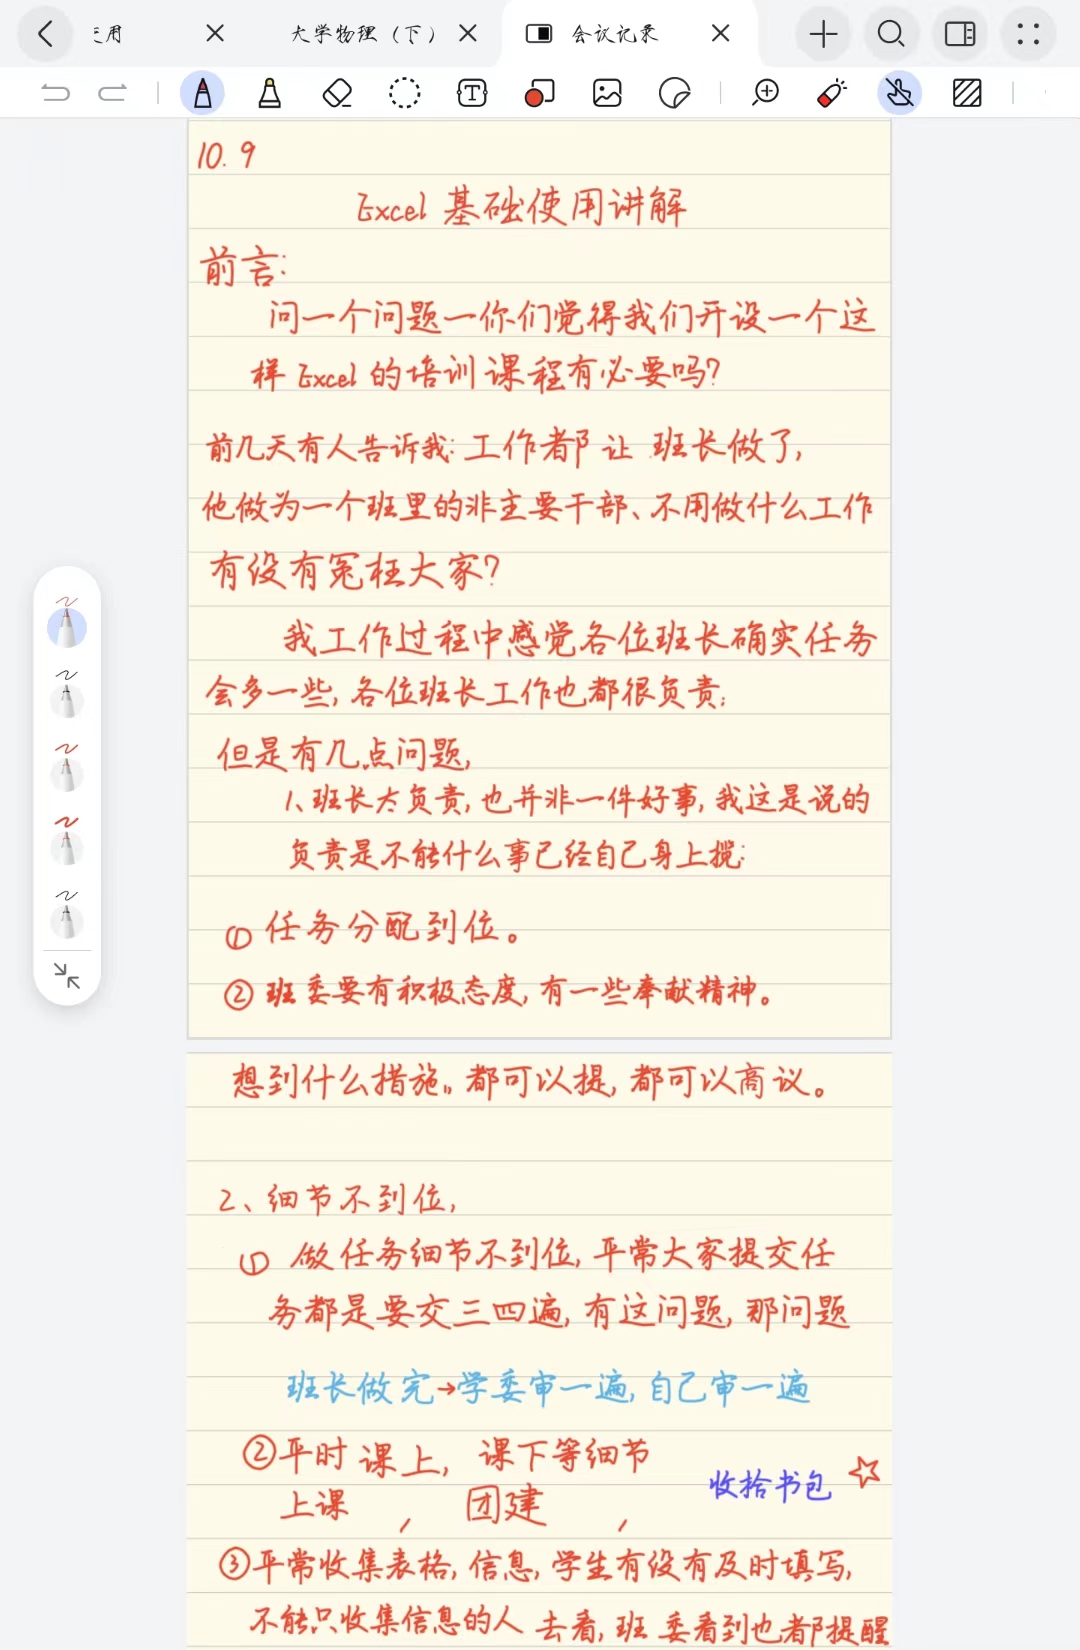 三用
大学物理（下）
会议记录
10.9
Excel 基础使用讲解
前言：
问一个问题一你们觉得我们开设一个这
样 Excel 的培训课程有必要吗？
前几天有人告诉我：工作都让 班长做了，
他做为一个班里的非主要干部、不用做什么工作
有没有冤枉大家？
我工作过程中感觉各位班长确实任务
会多一些，各位班长工作也都很负责；
但是有几点问题，
1、班长太负责，也并非一件好事，我这是说的
负责是不能什么事已经自己身上揽：
① 任务分配到位。
② 班委要有积极态度，有一些奉献精神。
想到什么措施。都可以提，都可以商议。
2、细节不到位，
① 做任务细节不到位，平常大家提交任
务都是要交三四遍，有这问题，那问题
班长做完→学委审一遍，自己审一遍
②平时 课上， 课下等细节
收拾书包 ☆
上课 ， 团建 ，
③平常收集表格，信息，学生有没有及时填写，
不能只收集信息的人 去看，班委看到也都提醒